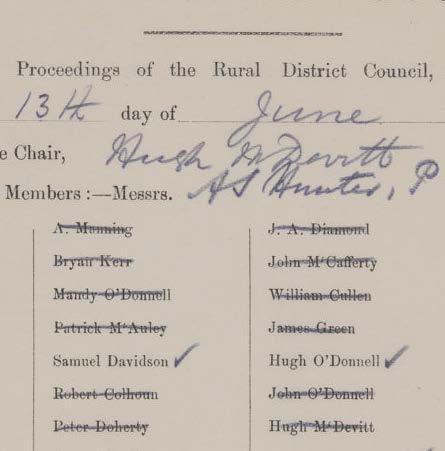 Proceedings of the Rural District Council,
13th day of June
e Chair, Hugh McDevitt
Members :—Messrs. A S Hunter, P
A. Manning J. A. Diamond
Bryan Kerr John M'Cafferty
Mandy O'Donnell William Cullen
Patrick M'Auley James Green
Samuel Davidson ✓ Hugh O'Donnell ✓
Robert Colhoun John O'Donnell
Peter Doherty Hugh M'Devitt